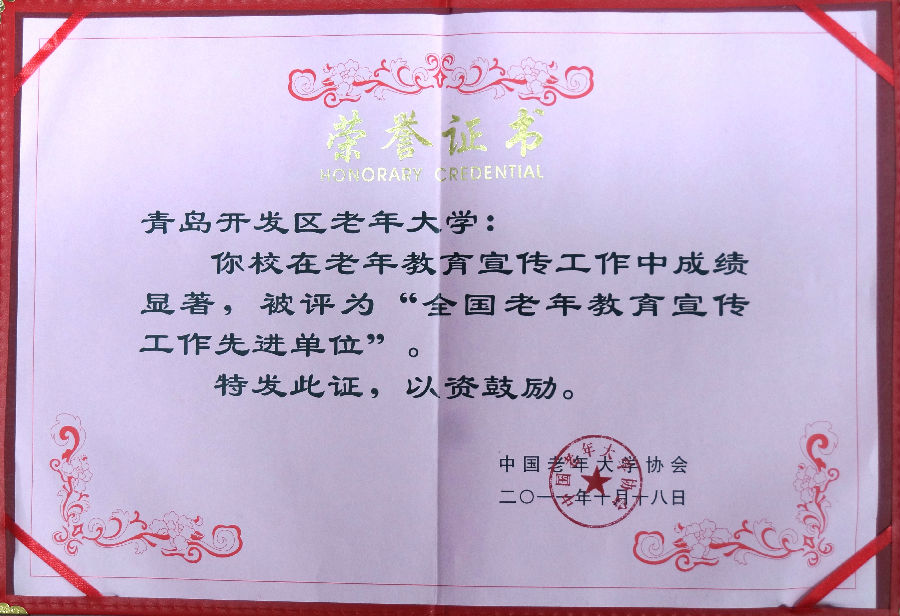 荣誉证书
HONORARY CREDENTIAL
青岛开发区老年大学：
你校在老年教育宣传工作中成绩
显著，被评为“全国老年教育宣传
工作先进单位”。
特发此证，以资鼓励。
中国老年大学协会
二〇一一年十月十八日
中国老年大学协会